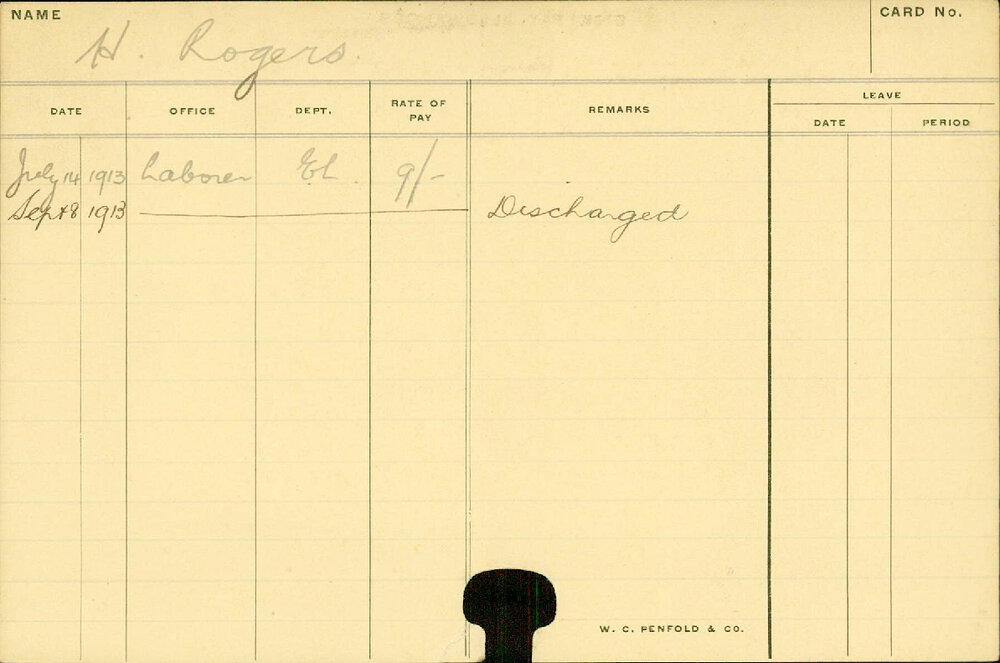 NAME
H. Rogers
CARD No.
DATE OFFICE DEPT. RATE OF PAY REMARKS LEAVE
DATE PERIOD
July 14 1913 Laborer EL. 9/-
Sept 8 1913 Discharged
W. C. PENFOLD & CO.